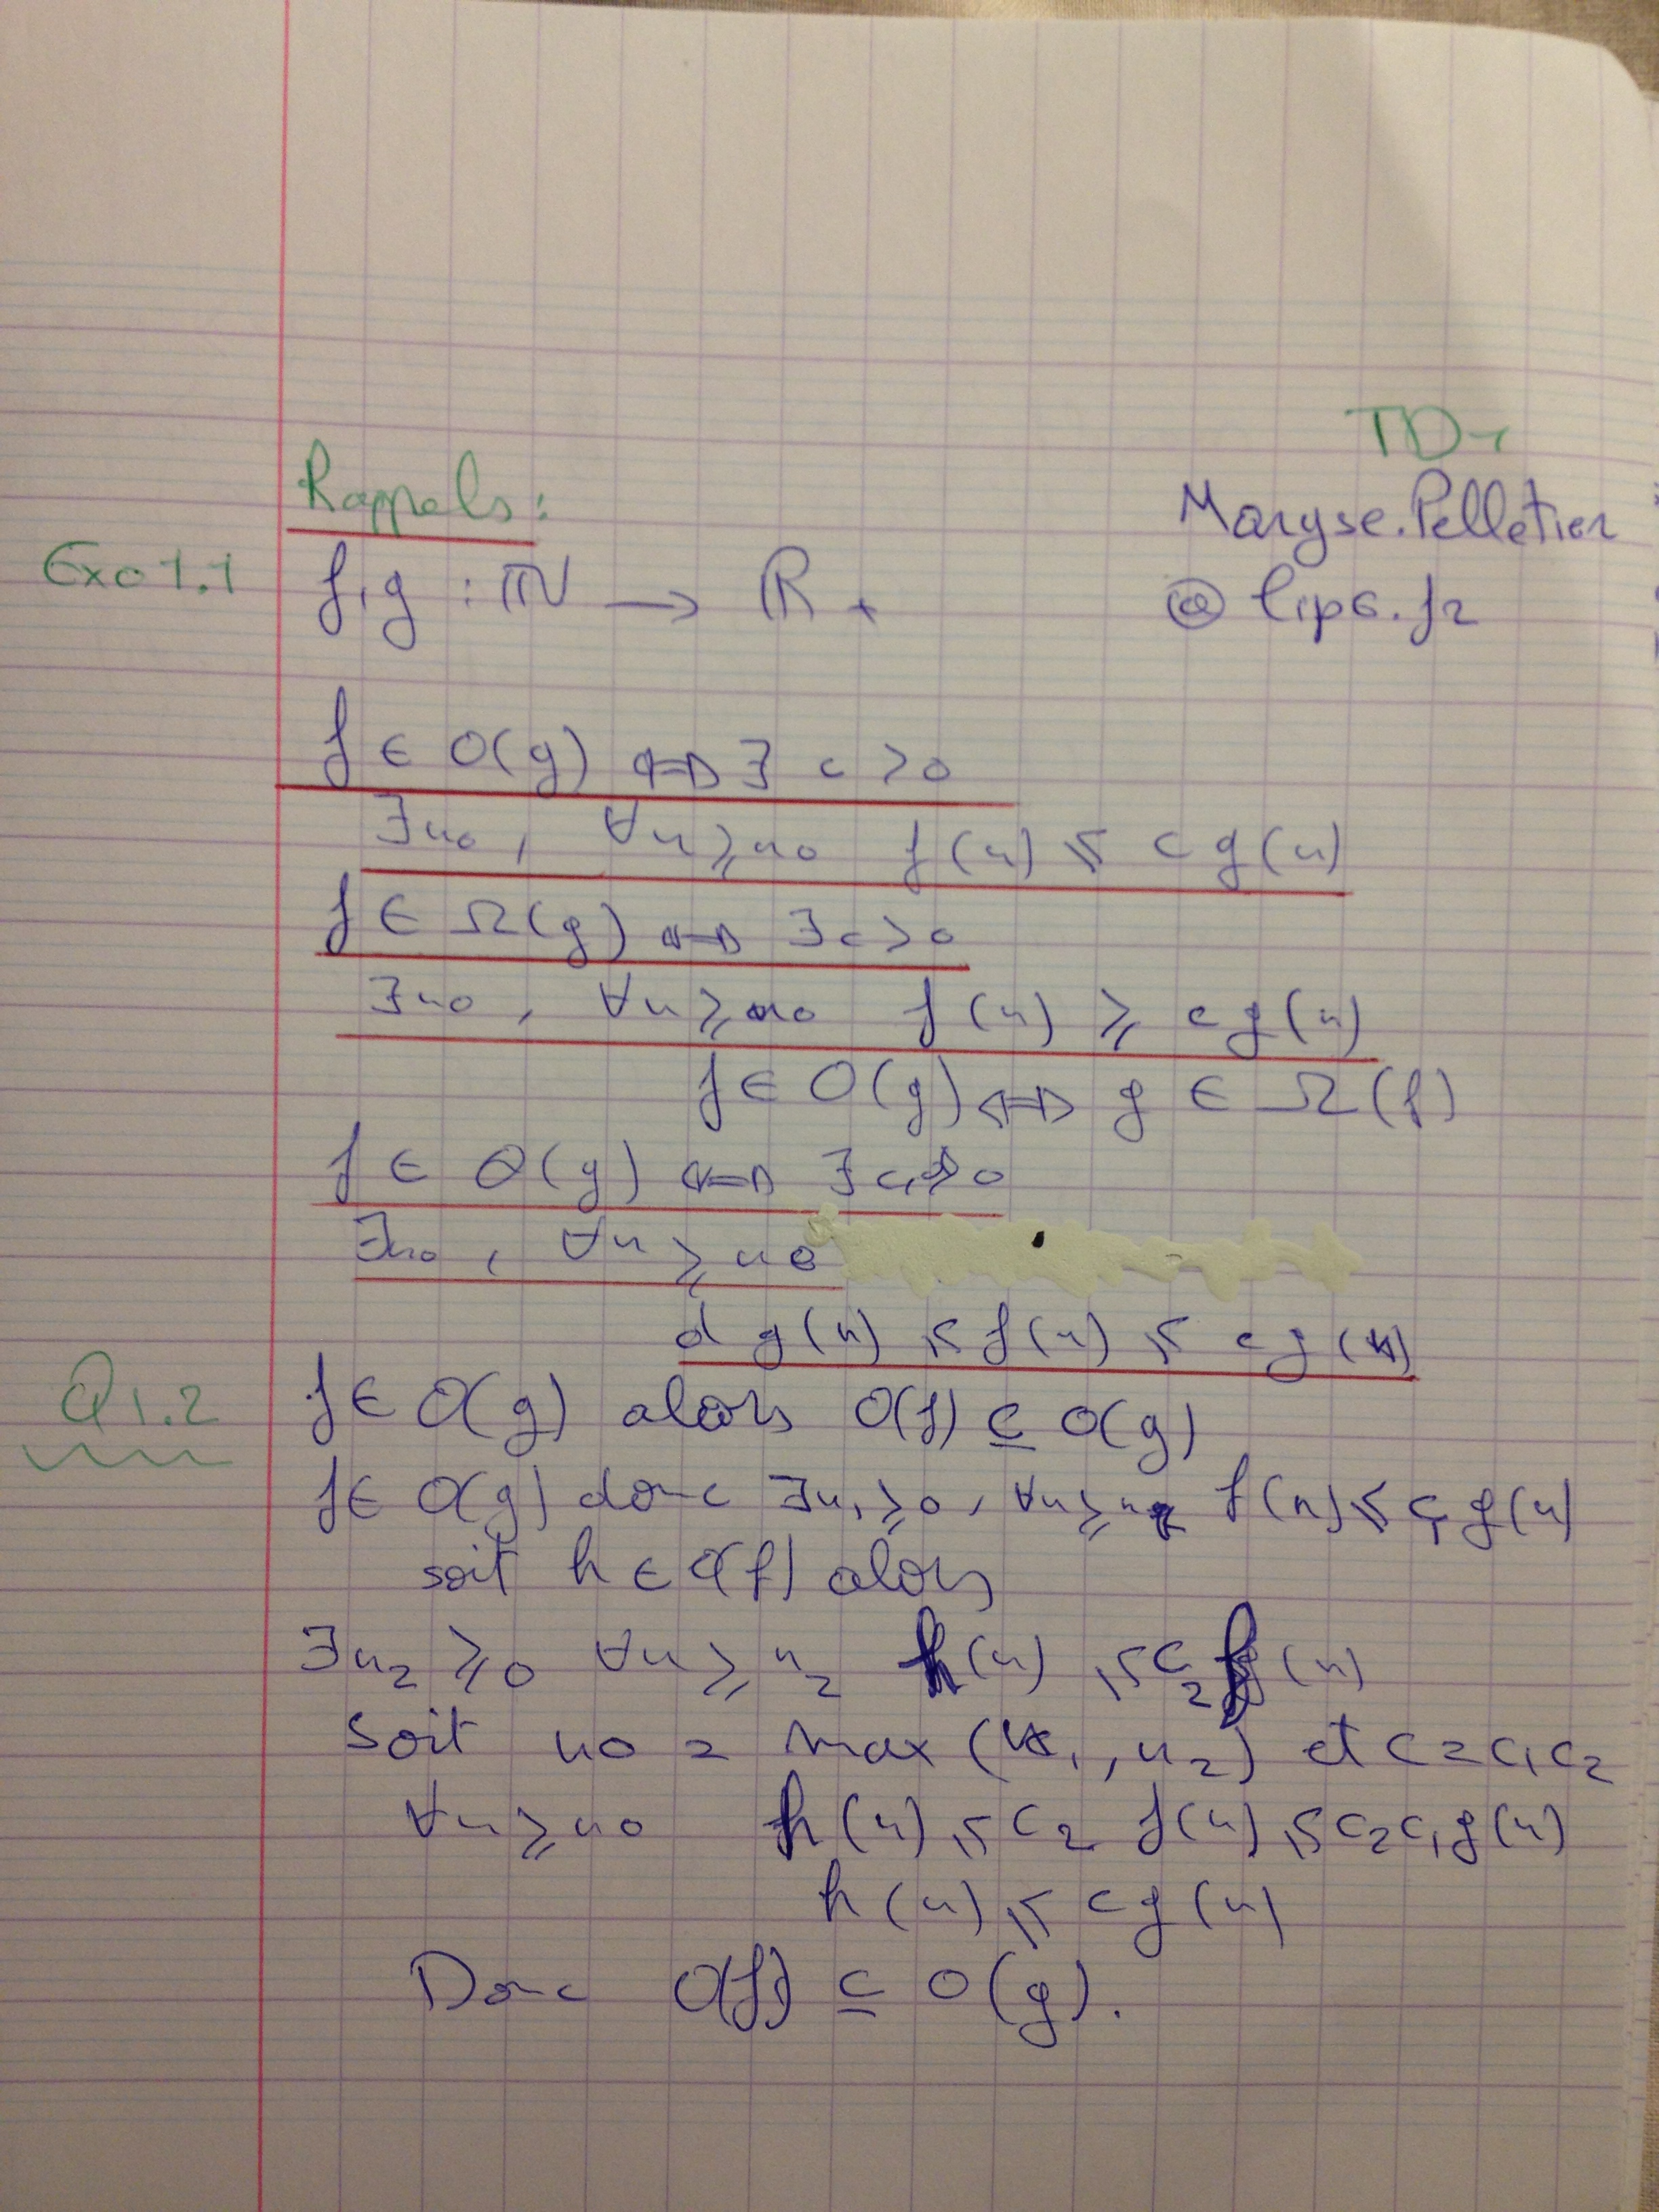 TD1
Rappels:
Maryse.Pelletier
@ lip6.fr
Exo 1.1
f,g : ℕ → ℝ+
f ∈ O(g) ⇔ ∃ c > 0
∃n0, ∀n ≥ n0 f(n) ≤ c g(n)
f ∈ Ω(g) ⇔ ∃ c > 0
∃n0, ∀n ≥ n0 f(n) ≥ c g(n)
f ∈ O(g) ⇔ g ∈ Ω(f)
f ∈ Θ(g) ⇔ ∃ c,d > 0
∃n0, ∀n ≥ n0
d g(n) ≤ f(n) ≤ c g(n)
Q1.2
f ∈ O(g) alors O(f) ⊆ O(g)
f ∈ O(g) donc ∃n₁ ≥ 0, ∀n ≥ n₁ f(n) ≤ c₁ g(n)
soit h ∈ O(f) alors
∃n₂ ≥ 0 ∀n ≥ n₂ h(n) ≤ c₂ f(n)
Soit n0 = max(n₁, n₂) et c = c₁c₂
∀n ≥ n0 h(n) ≤ c₂ f(n) ≤ c₂c₁g(n)
h(n) ≤ c g(n)
Donc O(f) ⊆ O(g).